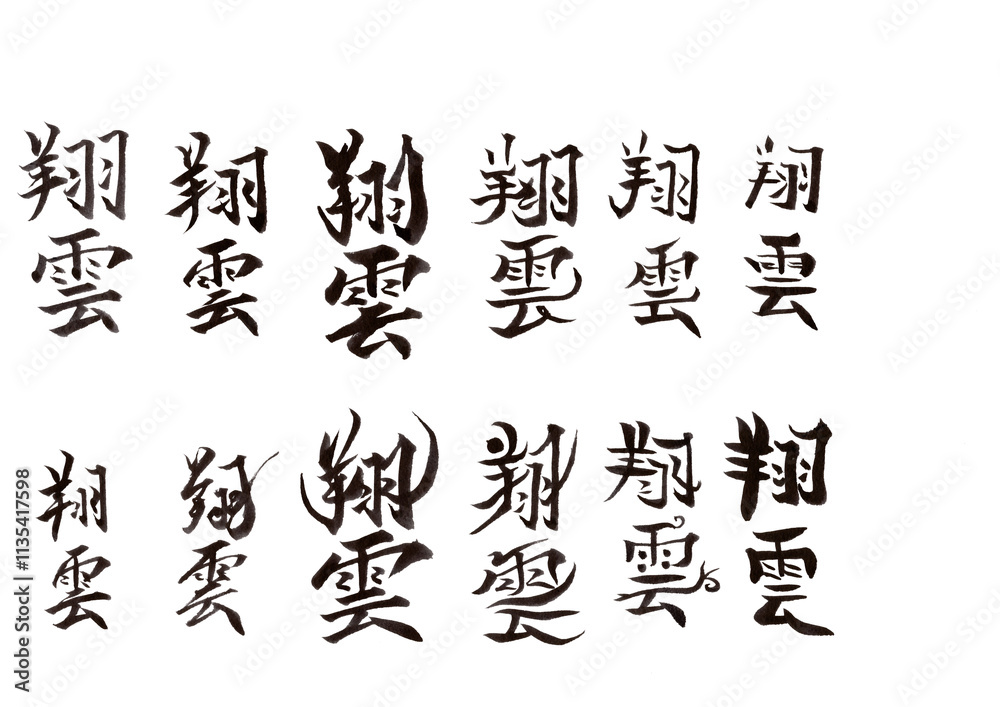 翔雲 翔雲 翔雲 翔雲 翔雲 翔雲
翔雲 翔雲 翔雲 翔雲 翔雲 翔雲
Adobe Stock | #1135417598